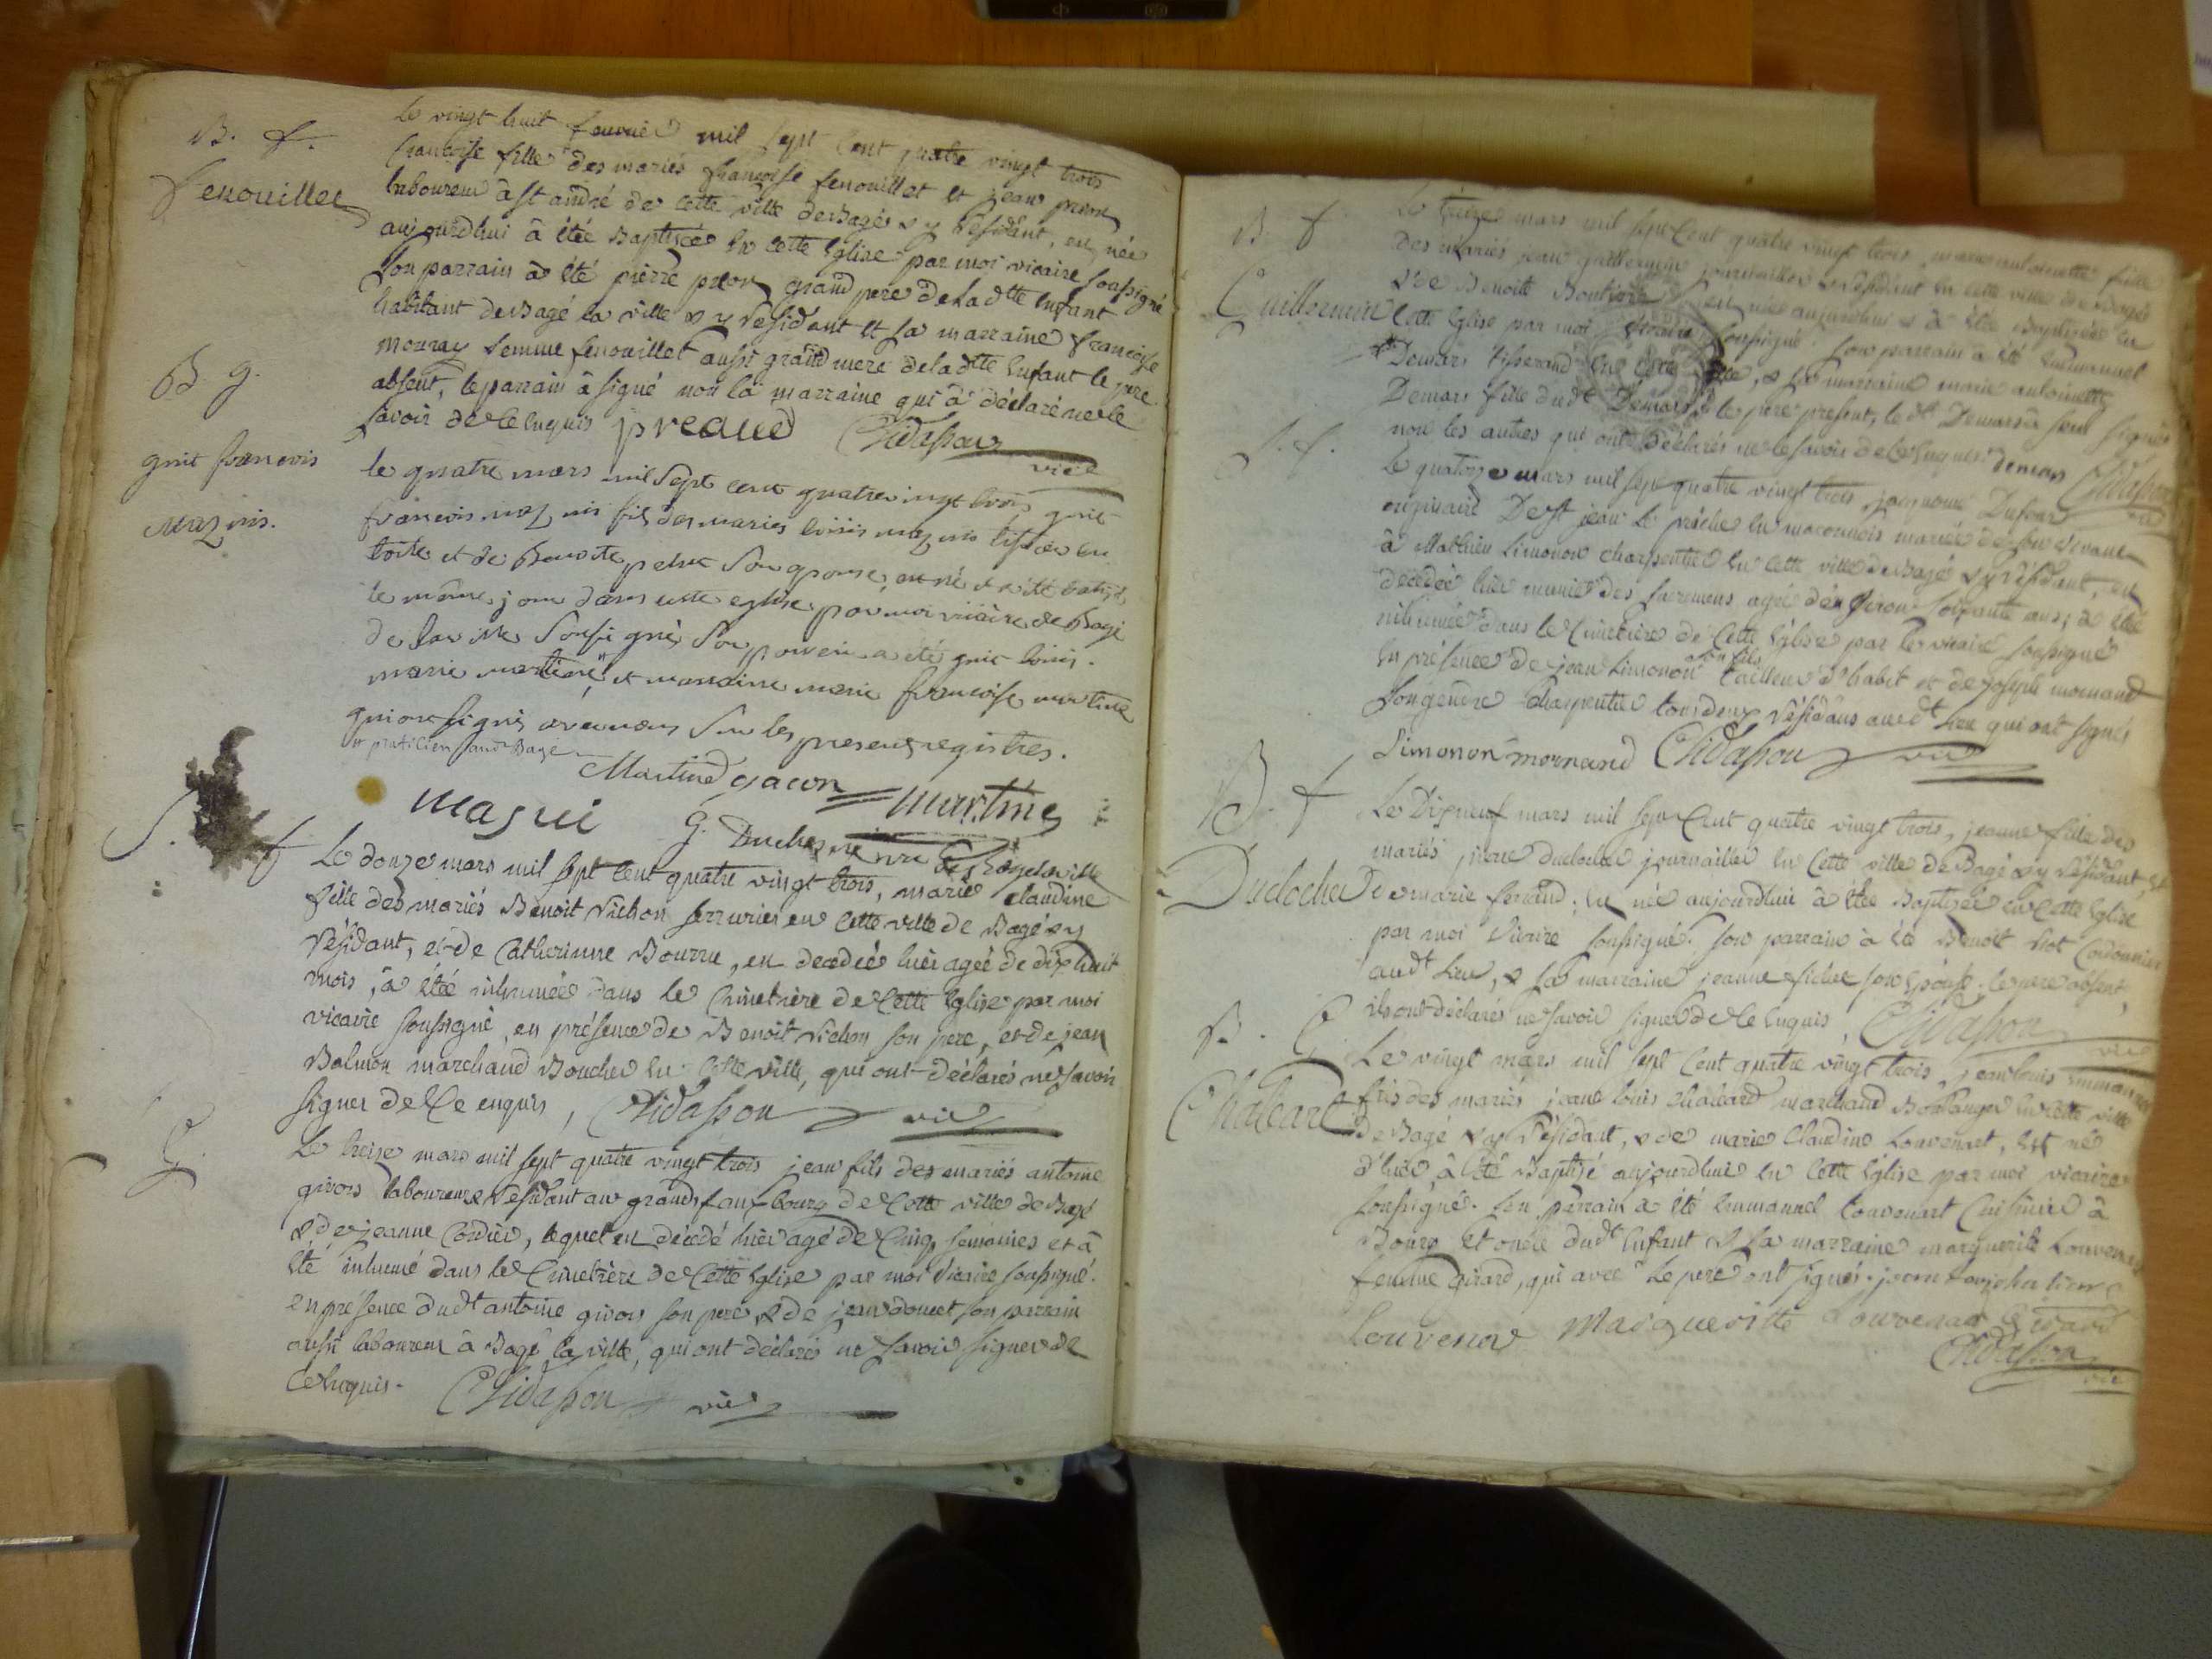 B. f.
fenouillet
Le vingt huit fevrier mil sept cent quatre vingt trois
françoise fille des mariés françoise fenouillet et jean
laboureur à st andré de cette ville de Bagé & y résidant, est née
aujourdhui à étée Baptisée en cette Eglise par moi vicaire soussigné
son parrain à été pierre grand pere de ladtte Enfant
habitant de Bagé la ville & y résidant et sa marraine françoise
femme fenouillet aussi grand mere de ladtte Enfant le pere
absent, le parrain à signé non la marraine qui à déclaré ne le
savoir de ce enquis preaud Chidasson
vic
B g.
françois
le quatre mars mil sept cent quatre vingt trois
françois fils des maries louis en
toile et de Benoite son epouse, est né et a été batisé
le même jour dans cette eglise par moi vicaire de Bagé
de la ville soussigné, son parrain a été louis
marie martine et marraine marie françoise martine
qui ont signés avec nous sur les presens registres.
Martine gacon martine
G.
S. f
Le douze mars mil sept cent quatre vingt trois, marie claudine
fille des mariés Benoit Vichon serrurier en cette ville de Bagé & y
résidant, et de Catherinne Bourru, est decedée hier agée de dix huit
mois, à étée inhumée dans le Cimetière de cette Eglise par moi
vicaire soussigné, en présence de Benoit Vichon son pere, et de jean
Balmon marchand Boucher en cette ville, qui ont déclarés ne savoir
signer de Ce enquis, Chidasson vic
S. G.
Le treise mars mil sept quatre vingt trois jean fils des mariés antoine
givors laboureur résidant au grand fauxbourg de cette ville de Bagé
& de jeanne Cordier, lequel est décédé hier agé de Cinq semaines et à
été inhumé dans le Cimetière de Cette Eglise par moi Vicaire soussigné.
en présence dudt antoine givors son pere, & de jean doucet son parrain
aussi laboureur à Bagé la ville, qui ont déclarés ne savoir signer de
Ce Enquis. Chidasson vic
B. f
Guillermin
Le treize mars mil sept Cent quatre vingt trois, marie antoinette fille
des mariés jean guillermin journallier & résidant en cette ville de Bagé
& de Benoitte est née aujourdhui & à étée Baptisée en
Cette Eglise par moi vicaire soussigné. son parrain à été Emmanuel
Demars tisserand en cette ville, & la marraine marie antoinette
Demars fille dudt Demars, le pere present, le dt Demars à seul signé
non les autres qui ont déclarés ne le savoir de Ce Enquis. demars Chidasson
vic
S. f.
Le quatorze mars mil sept quatre vingt trois, Dufour
originaire De st jean le priche en maconnois mariée de son vivant
à Mathieu Limonon charpentier en cette ville de Bagé & y résidant, est
decedée hier munie des sacremens agée d'en viron soixante ans, à étée
inhumée dans le Cimetière de Cette Eglise par le vicaire soussigné
En présence de jean Limonon son fils tailleur d'habit et de joseph mornand
son gendre Charpentier tous deux résidans audt lieu qui ont signés
Limonon mornand Chidasson vic
B. f
Duclocher
Le Dixneuf mars mil sept Cent quatre vingt trois, jeanne fille des
mariés pierre duclocher journallier en Cette ville de Bagé & y résidant, et
De marie ferrand, est née aujourdhui à étée Baptisée en Cette Eglise
par moi Vicaire soussigné. son parrain à été Benoit Cordonnier
audt lieu, & sa marraine jeanne son Epouse, le pere absent,
ils ont déclarés ne savoir signer de Ce Enquis, Chidasson
vic
B. G.
Chaléard
Le vingt mars mil sept Cent quatre vingt trois, jean louis Emmanuel
fils des mariés jean louis chaléard marchand Boulanger en cette ville
de Bagé & y résidant, & de marie Claudine Louvenart, est né
d'hier à été Baptizé aujourdhui en Cette Eglise par moi vicaire
soussigné. son parrain a été Emmanuel Louvenart Cuisinier à
Bourg Et oncle dudt Enfant & La marraine marguerite Louvenart
femme Girard, qui avec le pere ont signés.
Louvenar Margueritte Louvenar Girard
Chidasson
vic